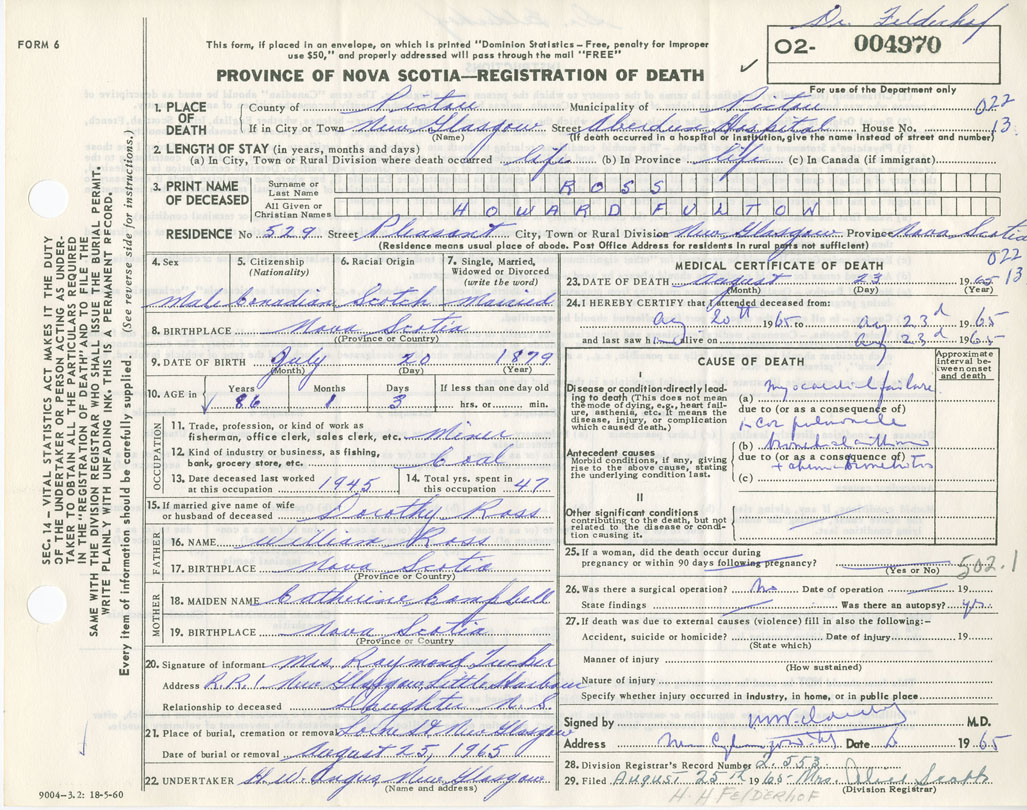 Dr. Felderhof
FORM 6
This form, if placed in an envelope, on which is printed "Dominion Statistics – Free, penalty for improper
use $50," and properly addressed will pass through the mail "FREE"
O2- 004970
PROVINCE OF NOVA SCOTIA—REGISTRATION OF DEATH
For use of the Department only
1. PLACE OF DEATH County of Pictou Municipality of Pictou 022
If in City or Town New Glasgow Street Aberdeen Hospital House No. 13
(Name) (If death occurred in a hospital or institution, give the name instead of street and number)
2. LENGTH OF STAY (in years, months and days)
(a) In City, Town or Rural Division where death occurred life (b) In Province life (c) In Canada (if immigrant)
3. PRINT NAME OF DECEASED Surname or Last Name ROSS
All Given or Christian Names HOWARD FULTON
RESIDENCE No 529 Street Pleasant City, Town or Rural Division New Glasgow Province Nova Scotia
(Residence means usual place of abode. Post Office Address for residents in rural parts not sufficient)
4. Sex 5. Citizenship (Nationality) 6. Racial Origin 7. Single, Married, Widowed or Divorced (write the word)
Male Canadian Scotch Married
8. BIRTHPLACE Nova Scotia
(Province or Country)
9. DATE OF BIRTH July 20 1879
(Month) (Day) (Year)
10. AGE in Years Months Days If less than one day old
86 1 3 hrs. or min.
OCCUPATION
11. Trade, profession, or kind of work as
fisherman, office clerk, sales clerk, etc. Miner
12. Kind of industry or business, as fishing,
bank, grocery store, etc. Coal
13. Date deceased last worked at this occupation 1945 14. Total yrs. spent in this occupation 47
15. If married give name of wife or husband of deceased Dorothy Ross
FATHER
16. NAME William Ross
17. BIRTHPLACE Nova Scotia
(Province or Country)
MOTHER
18. MAIDEN NAME Catherine Campbell
19. BIRTHPLACE Nova Scotia
(Province or Country)
20. Signature of informant Mrs. Raymond Tucker
Address R.R.1 New Glasgow Little Harbour
Relationship to deceased Daughter N.S.
21. Place of burial, cremation or removal New Glasgow
Date of burial or removal August 25, 1965
22. UNDERTAKER H. W. Angus, New Glasgow
(Name and address)
9004—3.2: 18-5-60
MEDICAL CERTIFICATE OF DEATH 022
23. DATE OF DEATH August 23 1965 13
(Month) (Day) (Year)
24. I HEREBY CERTIFY that I attended deceased from:
Aug 20th 1965 to Aug 23d 1965
and last saw him alive on Aug 23d 1965
CAUSE OF DEATH
Approximate interval between onset and death
I
Disease or condition directly leading to death (This does not mean the mode of dying, e.g., heart failure, asthenia, etc. It means the disease, injury, or complication which caused death.)
(a) myocardial failure
due to (or as a consequence of)
+ cor pulmonale
Antecedent causes
Morbid conditions, if any, giving rise to the above cause, stating the underlying condition last.
(b) bronchial asthma
due to (or as a consequence of)
+ chronic bronchitis
(c)
II
Other significant conditions
contributing to the death, but not related to the disease or condition causing it.
25. If a woman, did the death occur during
pregnancy or within 90 days following pregnancy? (Yes or No) 502.1
26. Was there a surgical operation? No Date of operation 19
State findings Was there an autopsy? yes
27. If death was due to external causes (violence) fill in also the following:-
Accident, suicide or homicide? Date of injury 19
(State which)
Manner of injury
(How sustained)
Nature of injury
Specify whether injury occurred in industry, in home, or in public place
Signed by M.D.
Address New Glasgow NS Date 1965
28. Division Registrar's Record Number 2553
29. Filed August 25th 1965 Mrs.
(Division Registrar)
H. H FELDERHOF
SEC. 14 – VITAL STATISTICS ACT MAKES IT THE DUTY
OF THE UNDERTAKER OR PERSON ACTING AS UNDER-
TAKER TO OBTAIN ALL THE PARTICULARS REQUIRED
IN THE "REGISTRATION OF DEATH" AND TO FILE THE
SAME WITH THE DIVISION REGISTRAR WHO SHALL ISSUE THE BURIAL PERMIT.
WRITE PLAINLY WITH UNFADING INK. THIS IS A PERMANENT RECORD.
Every item of information should be carefully supplied. (See reverse side for instructions.)